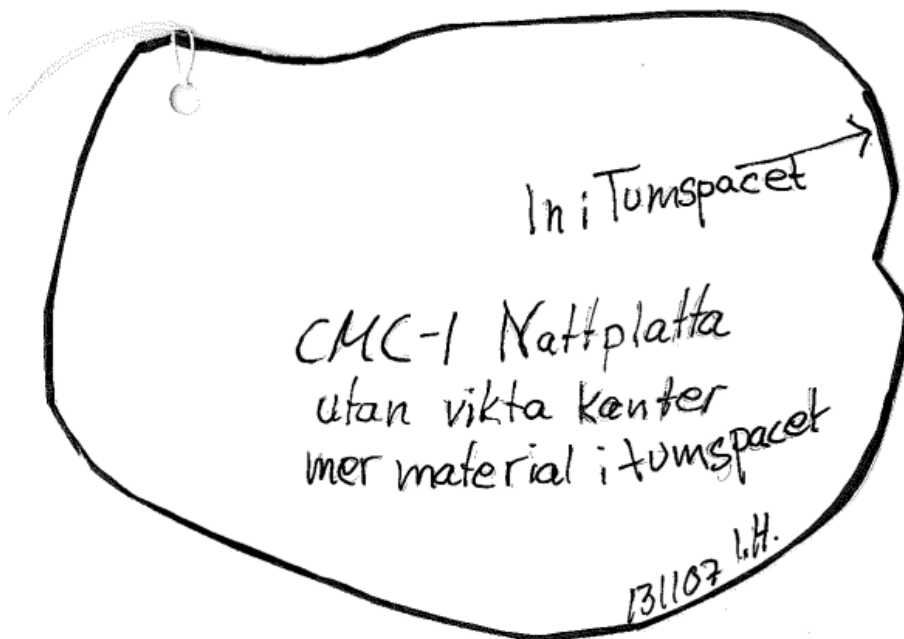 In i Tumspacet
CMC-1 Nattplatta
utan vikta kanter
mer material i tumspacet
131107 I.H.